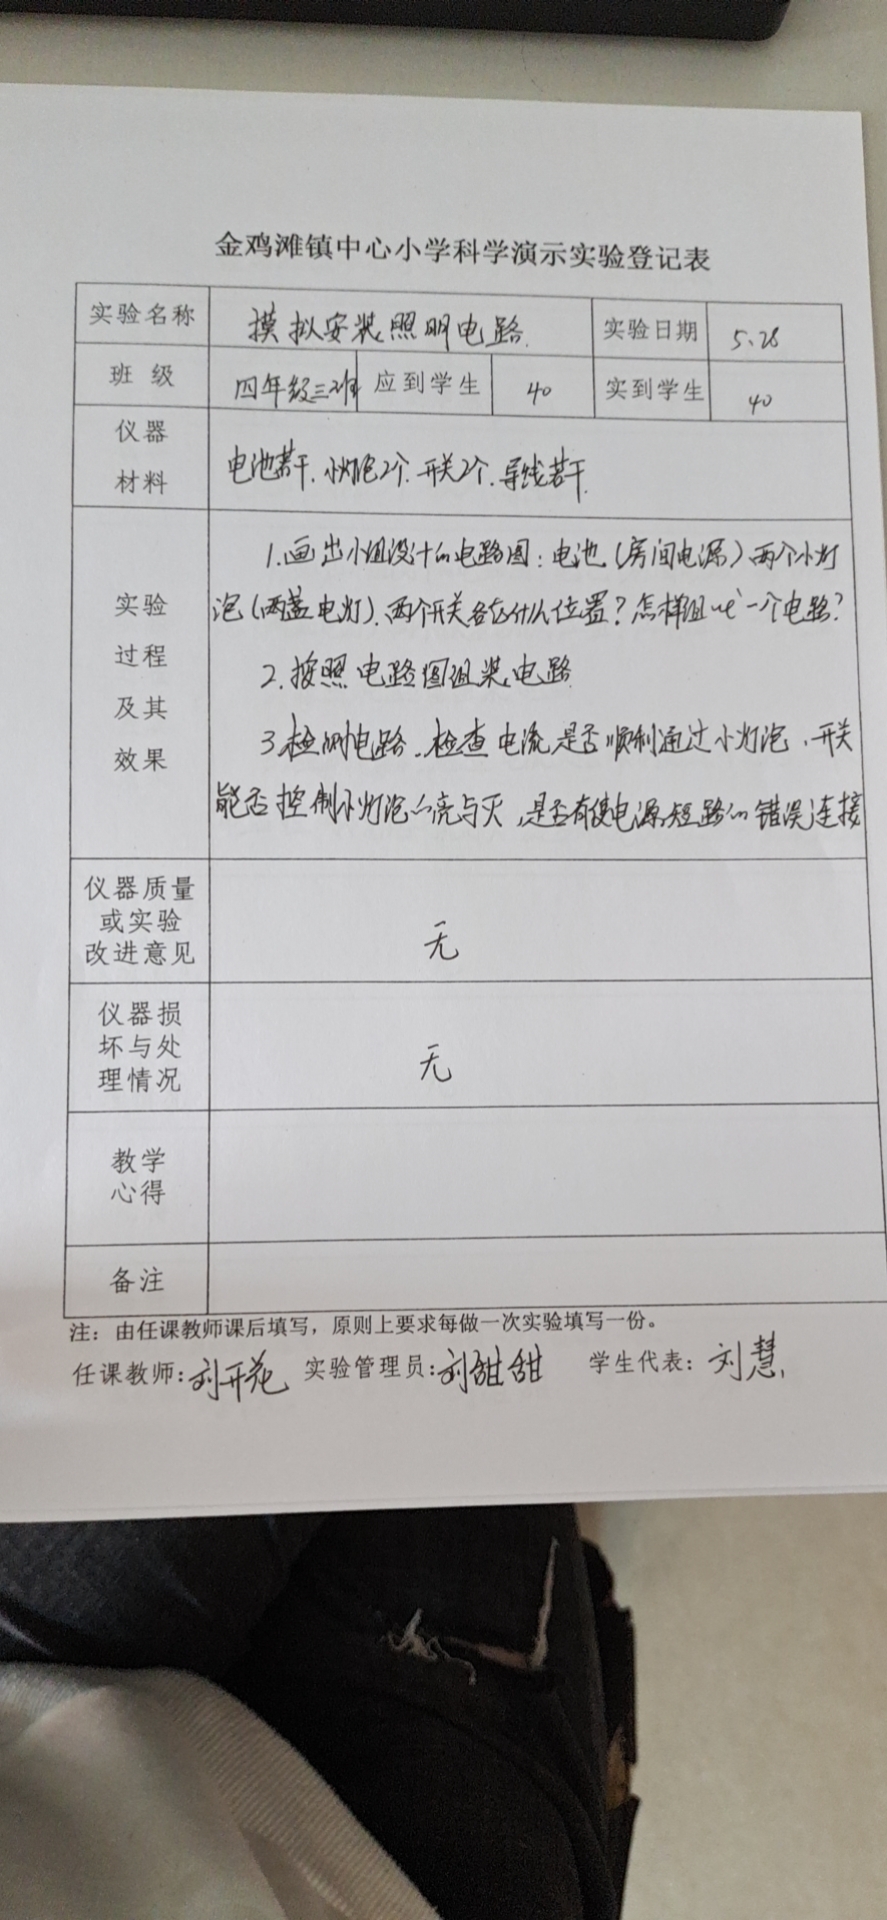 金鸡滩镇中心小学科学演示实验登记表
实验名称 模拟安装照明电路. 实验日期 5.28
班 级 四年级三班 应到学生 40 实到学生 40
仪器
材料
电池若干. 小灯泡2个. 开关2个. 导线若干.
实验
过程
及其
效果
1.画出小组设计的电路图:电池(房间电源)两个小灯
泡(两盏电灯).两个开关各在什么位置?怎样组成一个电路?
2.按照电路图组装电路
3.检测电路.检查电流是否顺利通过小灯泡.开关
能否控制小灯泡的亮与灭,是否有使电源短路的错误连接
仪器质量
或实验
改进意见
无
仪器损
坏与处
理情况
无
教学
心得
备注
注:由任课教师课后填写,原则上要求每做一次实验填写一份。
任课教师:刘开花 实验管理员:刘甜甜 学生代表:刘慧.